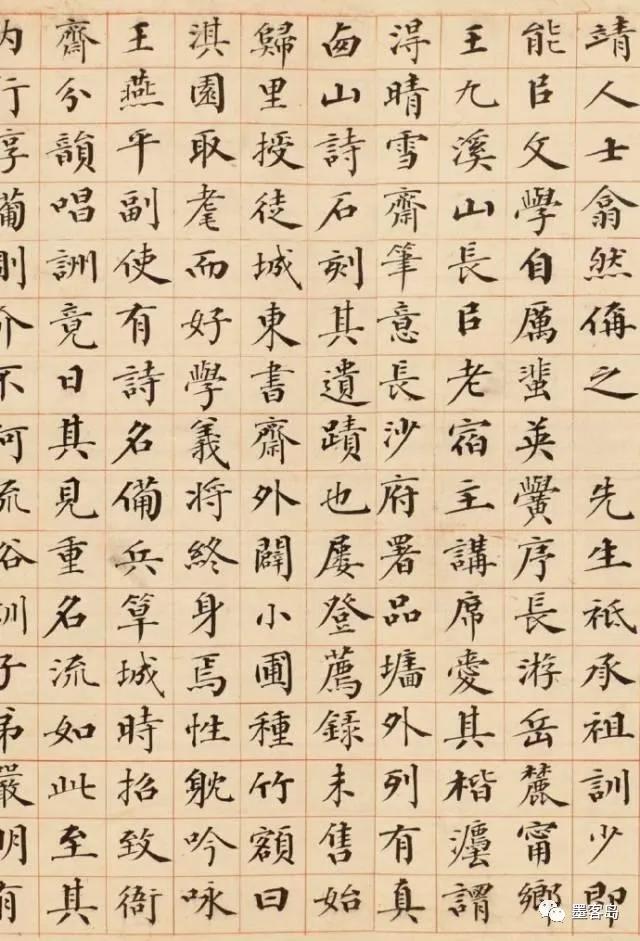 靖人士翕然偁之　先生祇承祖訓少即
能㠯文學自厲蜚英黌序長游岳麓甯鄉
王九溪山長㠯老宿主講席愛其楷灋謂
淂晴雪齋筆意長沙府署品墻外列有真
卥山詩石刻其遺蹟也屢登薦錄未售始
歸里授徒城東書齋外闢小圃種竹額曰
淇園取耄而好學義將終身焉性躭吟咏
王燕平副使有詩名備兵筸城時招致衙
齋分韻唱詶竟日其見重名流如此至其
內行介不可流俗訓子弟嚴明有
墨客岛